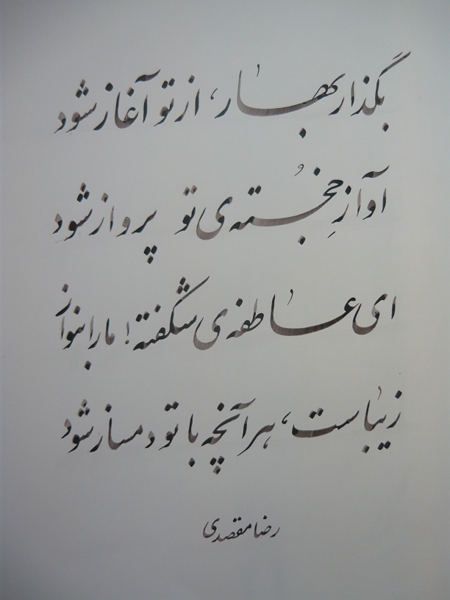 بگذار بهار، از تو آغاز شود
آوازِ خجُسته‌ی تو پرواز شود
ای عاطفه‌ی شکفته! ما را بنواز
زیباست، هر آنچه با تو دمساز شود
رضا مقصدی